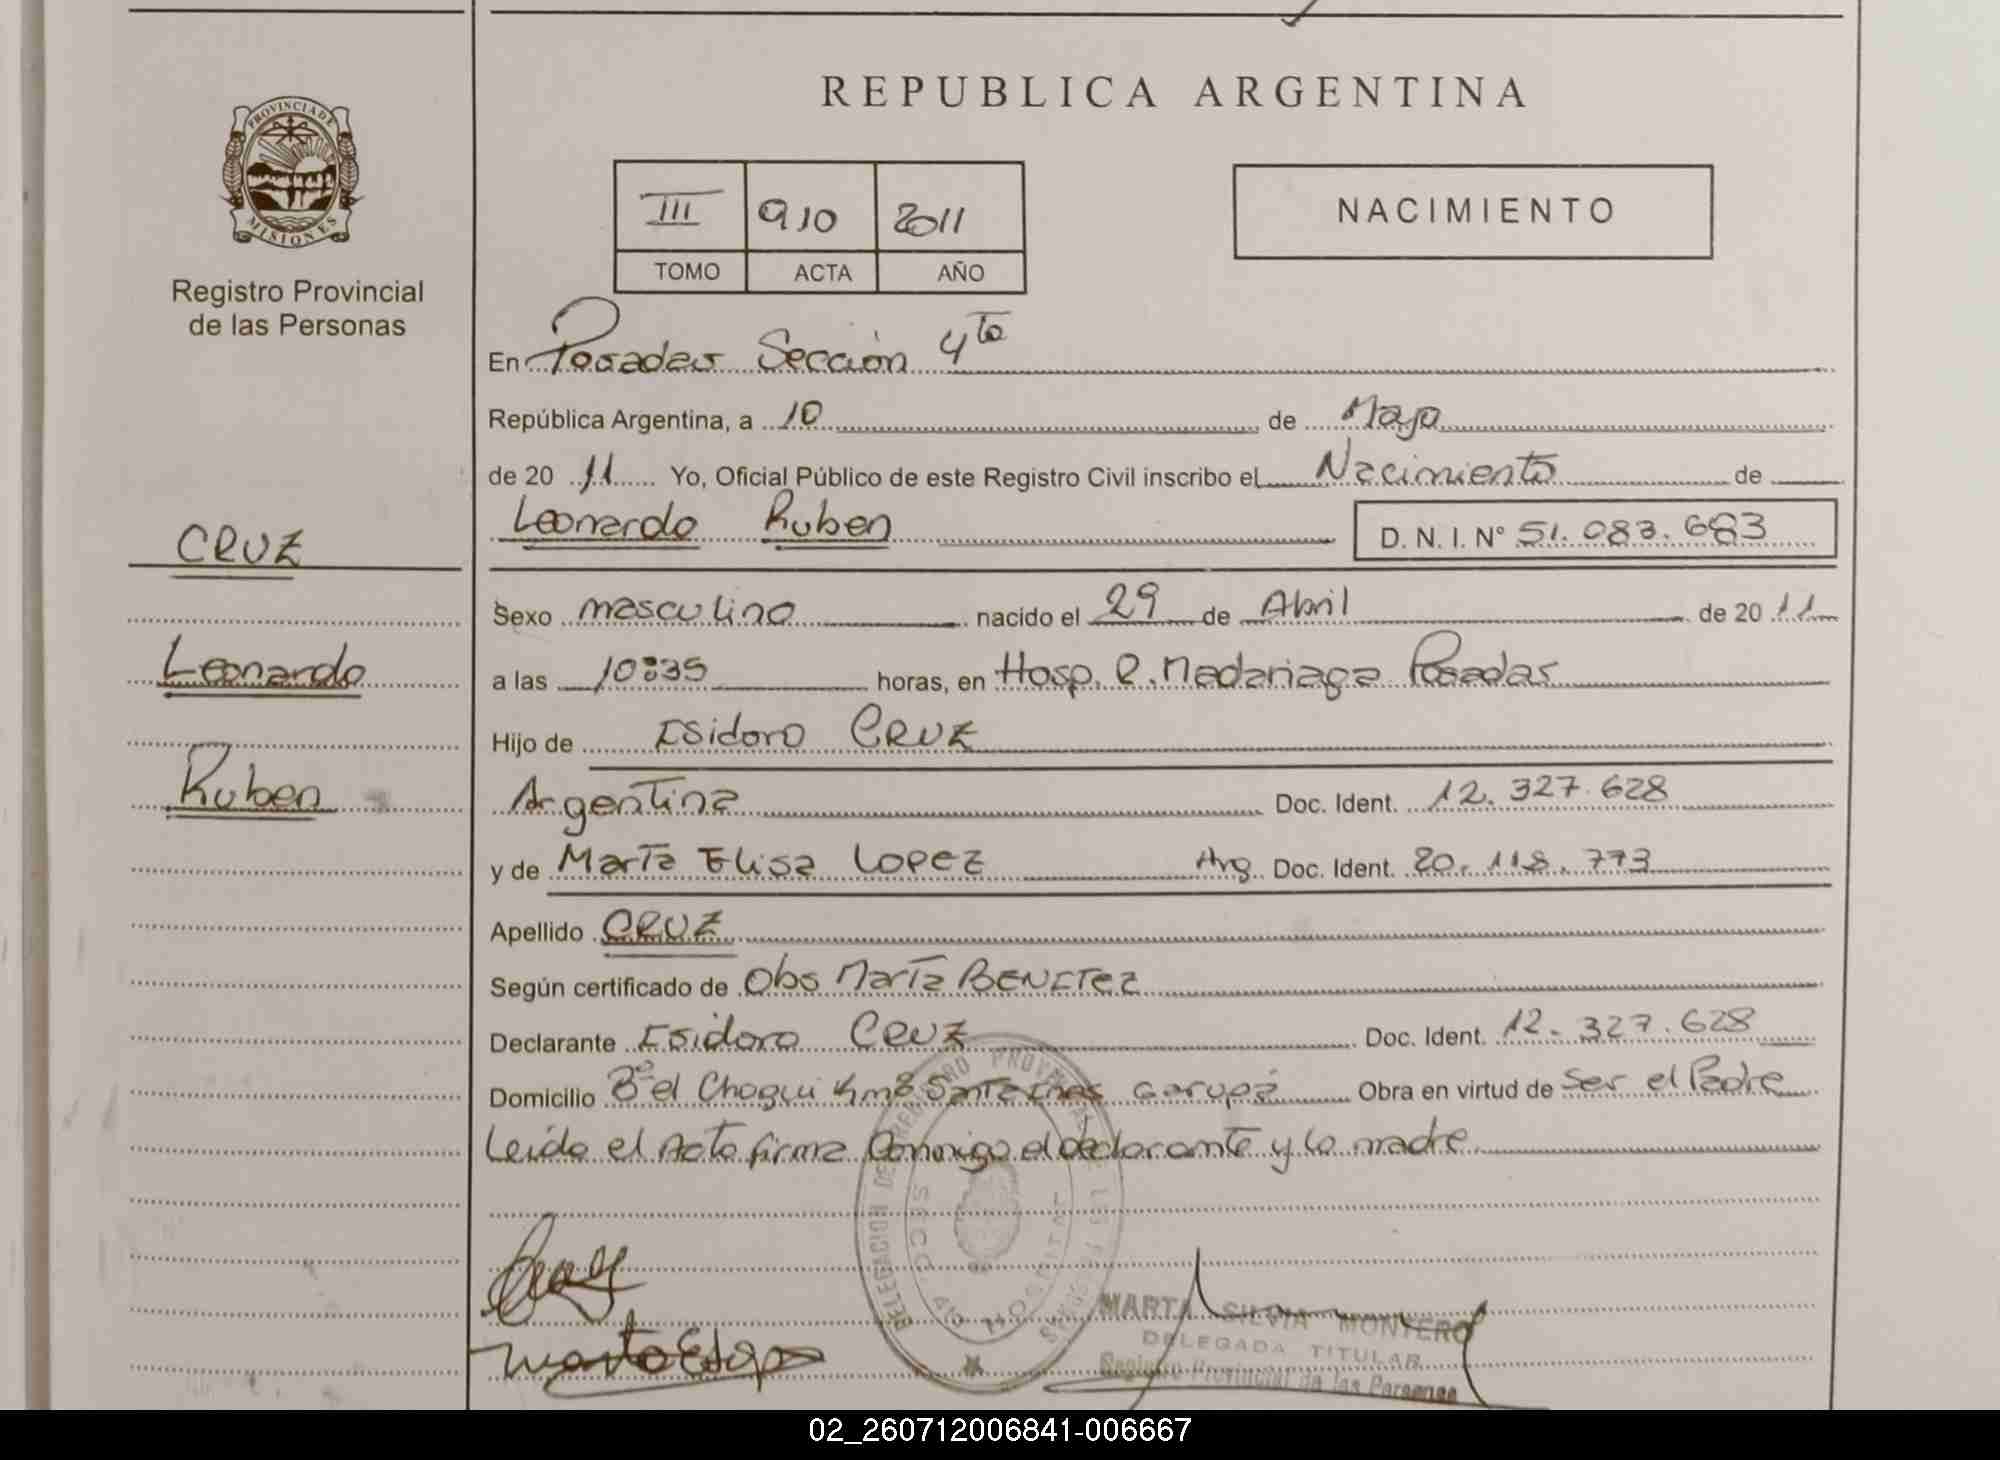 REPUBLICA ARGENTINA
PROVINCIA DE
MISIONES
Registro Provincial
de las Personas
III 910 2011
TOMO ACTA AÑO
NACIMIENTO
En Posadas Sección 4ta
República Argentina, a 10 de Mayo
de 20 11 Yo, Oficial Público de este Registro Civil inscribo el Nacimiento de
Leonardo Ruben D. N. I. N° 51.083.683
CRUZ
Leonardo
Ruben
Sexo masculino nacido el 29 de Abril de 20 11
a las 10:35 horas, en Hosp. R. Madariaga Posadas
Hijo de Isidoro CRUZ
Argentina Doc. Ident. 12.327.628
y de Marta Elisa LOPEZ Arg. Doc. Ident. 20.118.773
Apellido CRUZ
Según certificado de Obs Marta BENITEZ
Declarante Isidoro CRUZ Doc. Ident. 12.327.628
Domicilio B° el Chogui Km8 Santa Ines Garupá Obra en virtud de ser el Padre
Leido el Acta firma Conmigo el declarante y la madre
MARTA SILVIA MONTERO
DELEGADA TITULAR
Registro Provincial de las Personas
02_260712006841-006667